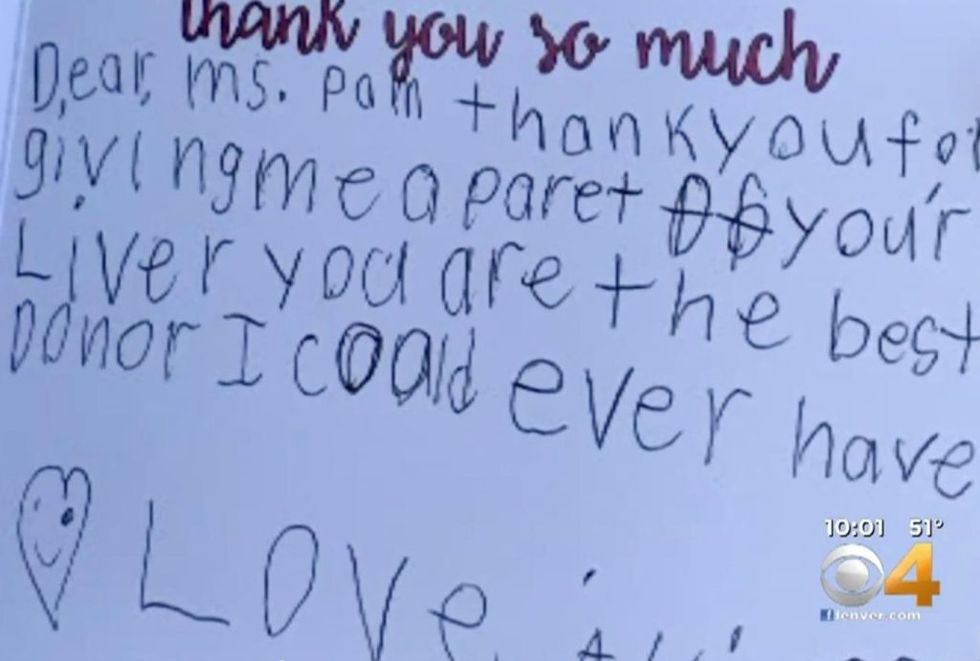 thank you so much
Dear, Ms. Pam thankyou for
giving me a paret of your
Liver you are the best
Donor I coould ever have
Love
10:01 51°
4